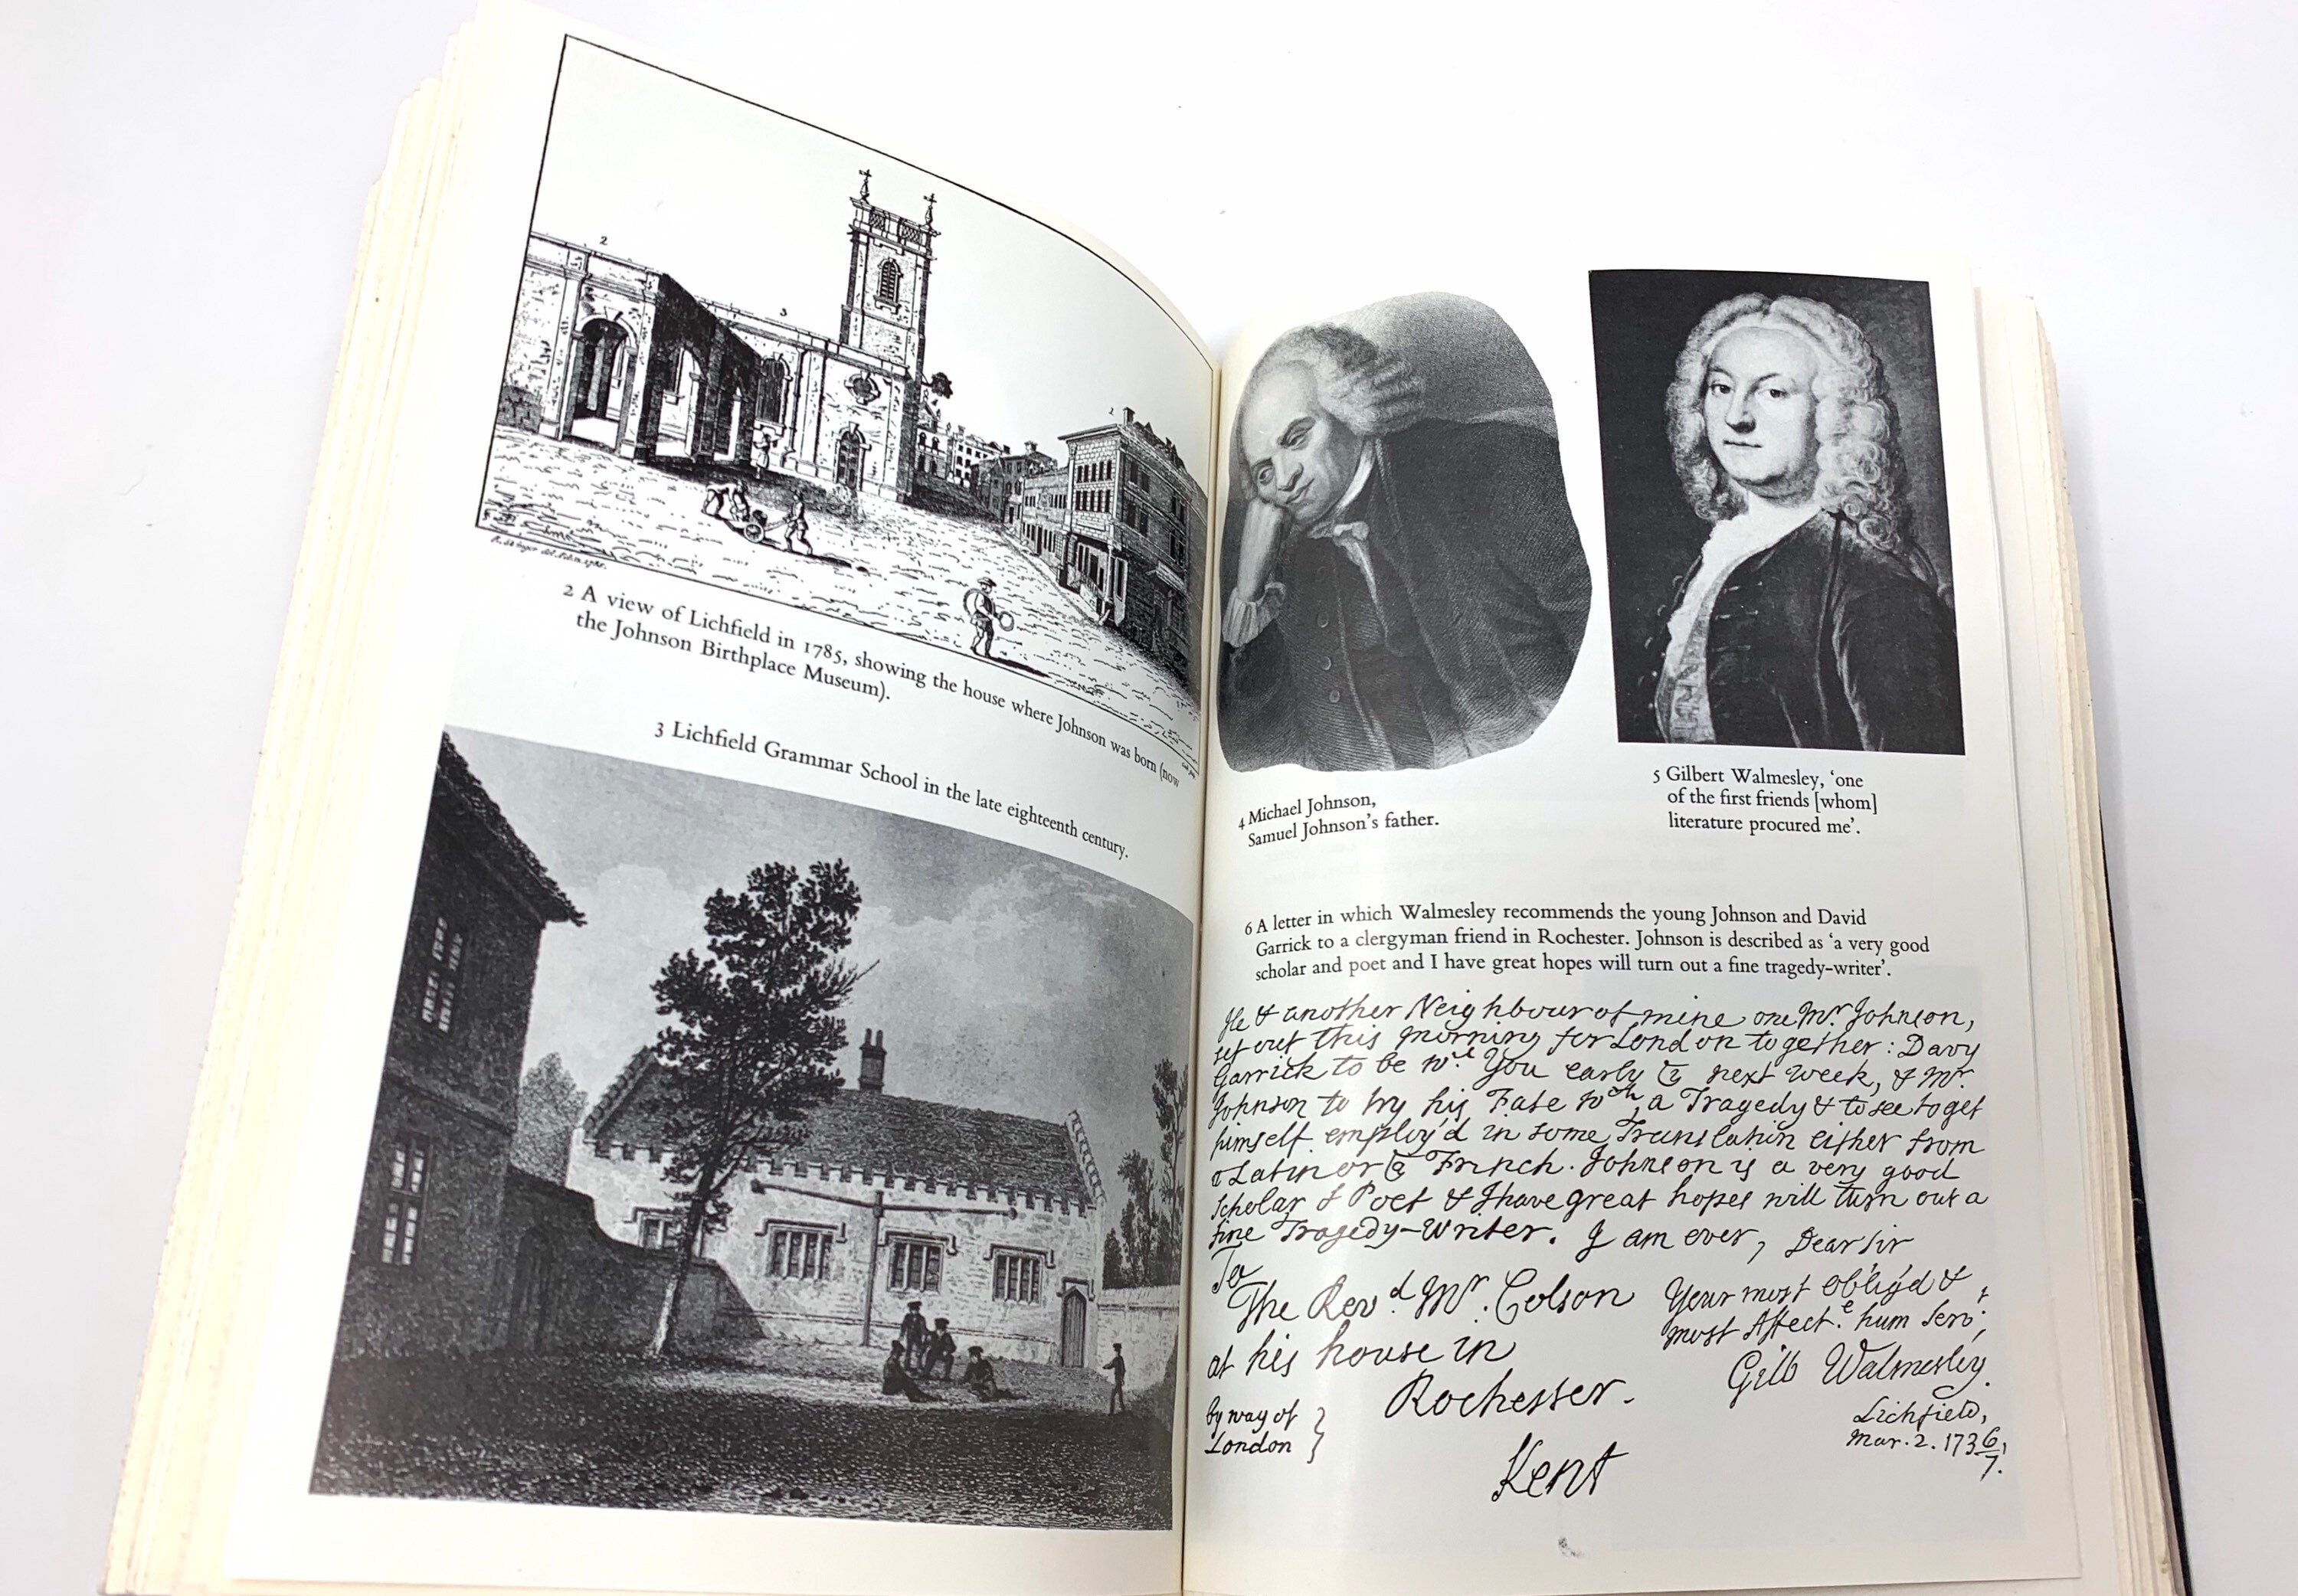 2
3
2
2 A view of Lichfield in 1785, showing the house where Johnson was born (now
the Johnson Birthplace Museum).
3 Lichfield Grammar School in the late eighteenth century.
4 Michael Johnson,
Samuel Johnson's father.
5 Gilbert Walmesley, 'one
of the first friends [whom]
literature procured me'.
6 A letter in which Walmesley recommends the young Johnson and David
Garrick to a clergyman friend in Rochester. Johnson is described as 'a very good
scholar and poet and I have great hopes will turn out a fine tragedy-writer'.
He & another Neighbour of mine one Mr. Johnson,
set out this morning for London together: Davy
Garrick to be wth. You early ye next week, & Mr.
Johnson to try his Fate wth. a Tragedy & to see to get
himself employ'd in some Translation either from
ye Latin or ye French. Johnson is a very good
Scholar & Poet & I have great hopes will turn out a
fine Tragedy-Writer. I am ever, Dear Sir
To
The Revd. Mr. Colson
at his house in
Rochester.
Kent
by way of
London
Your most obliged &
most Affecte. hum serv;
Gilb Walmesley.
Lichfield,
Mar. 2. 1736/7.